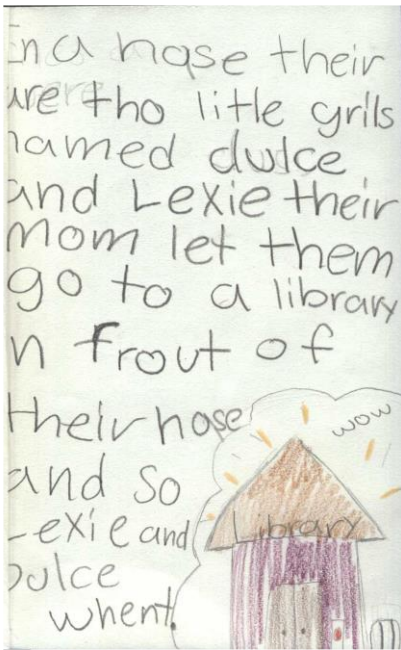 In a hose their
are tho litle grils
named dulce
and Lexie their
Mom let them
go to a library
in frout of
their hose
and so
Lexie and
Dulce
whent.
wow
Library